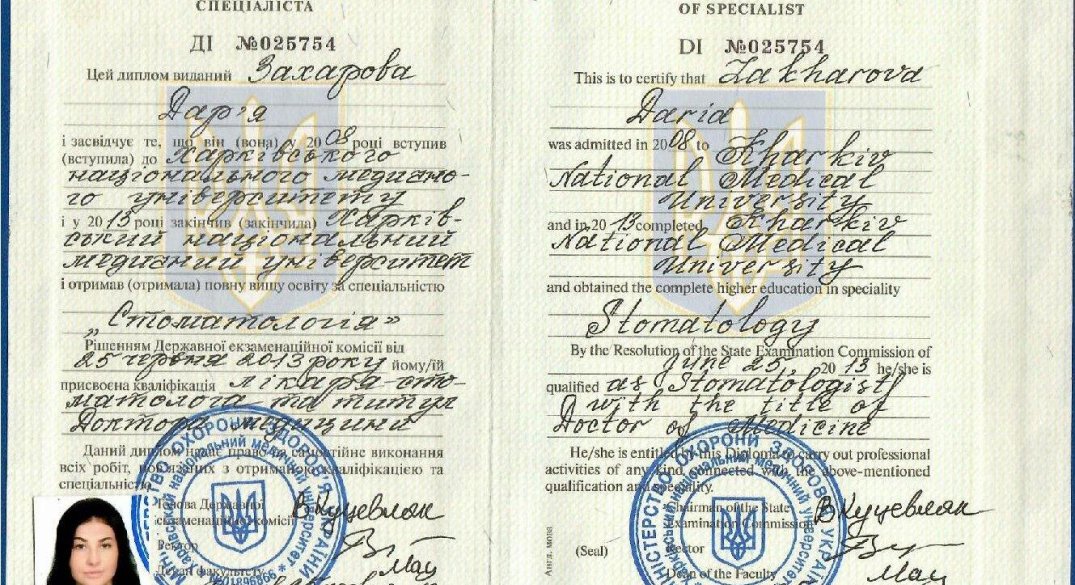 СПЕЦІАЛІСТА
ДІ №025754
Цей диплом виданий Захарова
Дар'я
і засвідчує те, що він (вона) у 2008 році вступив
(вступила) до Харківського
національного медично-
го університету
і у 2013 році закінчив (закінчила) Харків-
ський національний
медичний університет
і отримав (отримала) повну вищу освіту за спеціальністю
„Стоматологія»
Рішенням Державної екзаменаційної комісії від
25 червня 2013 року йому/їй
присвоєна кваліфікація лікаря-сто-
матолога та титул
Доктора медицини
Даний диплом надає право на самостійне виконання
всіх робіт, пов'язаних з отриманою кваліфікацією та
спеціальністю.
Голова Державної
екзаменаційної комісії
Ректор
Декан факультету
OF SPECIALIST
DI №025754
This is to certify that Zakharova
Daria
was admitted in 2008 to Kharkiv
National Medical
University
and in 2013 completed Kharkiv
National Medical
University
and obtained the complete higher education in speciality
Stomatology
By the Resolution of the State Examination Commission of
June 25, 2013 he/she is
qualified as Stomatologist
with the title of
Doctor of Medicine
He/she is entitled by this Diploma to carry out professional
activities of any kind connected with the above-mentioned
qualification and speciality.
Chairman of the State
Examination Commission
(Seal) Rector
Dean of the Faculty
Англ. мова
МІНІСТЕРСТВО ОХОРОНИ ЗДОРОВ'Я УКРАЇНИ